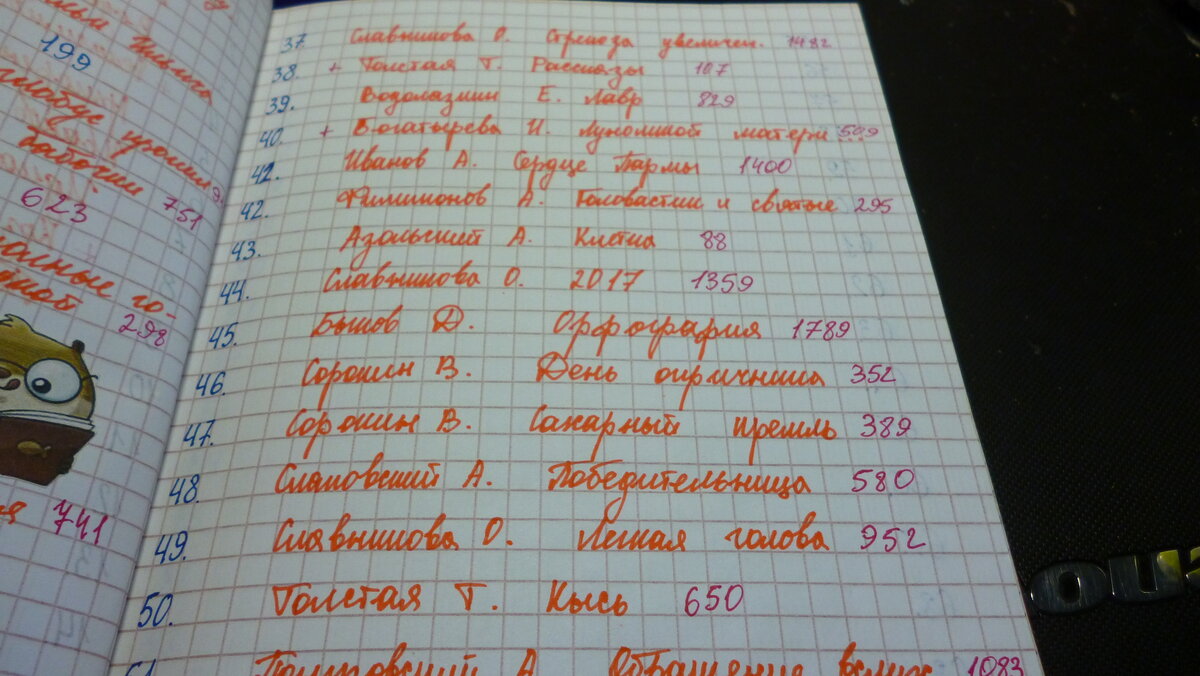 199
623
бабочки 751
298
741
37. Славникова О. Стрекоза увеличен. 1482
38. + Толстая Т. Рассказы 107
39. Водолазкин Е. Лавр 829
40. + Богатырева И. Луноликой матери 599
42. Иванов А. Сердце Пармы 1400
42. Филимонов А. Головастик и святые 295
43. Азольский А. Клетка 88
44. Славникова О. 2017 1359
45. Быков Д. Орфография 1789
46. Сорокин В. День опричника 352
47. Сорокин В. Сахарный кремль 389
48. Слаповский А. Победительница 580
49. Славникова О. Легкая голова 952
50. Толстая Т. Кысь 650
51 А. Обращение вслух 1083
OU